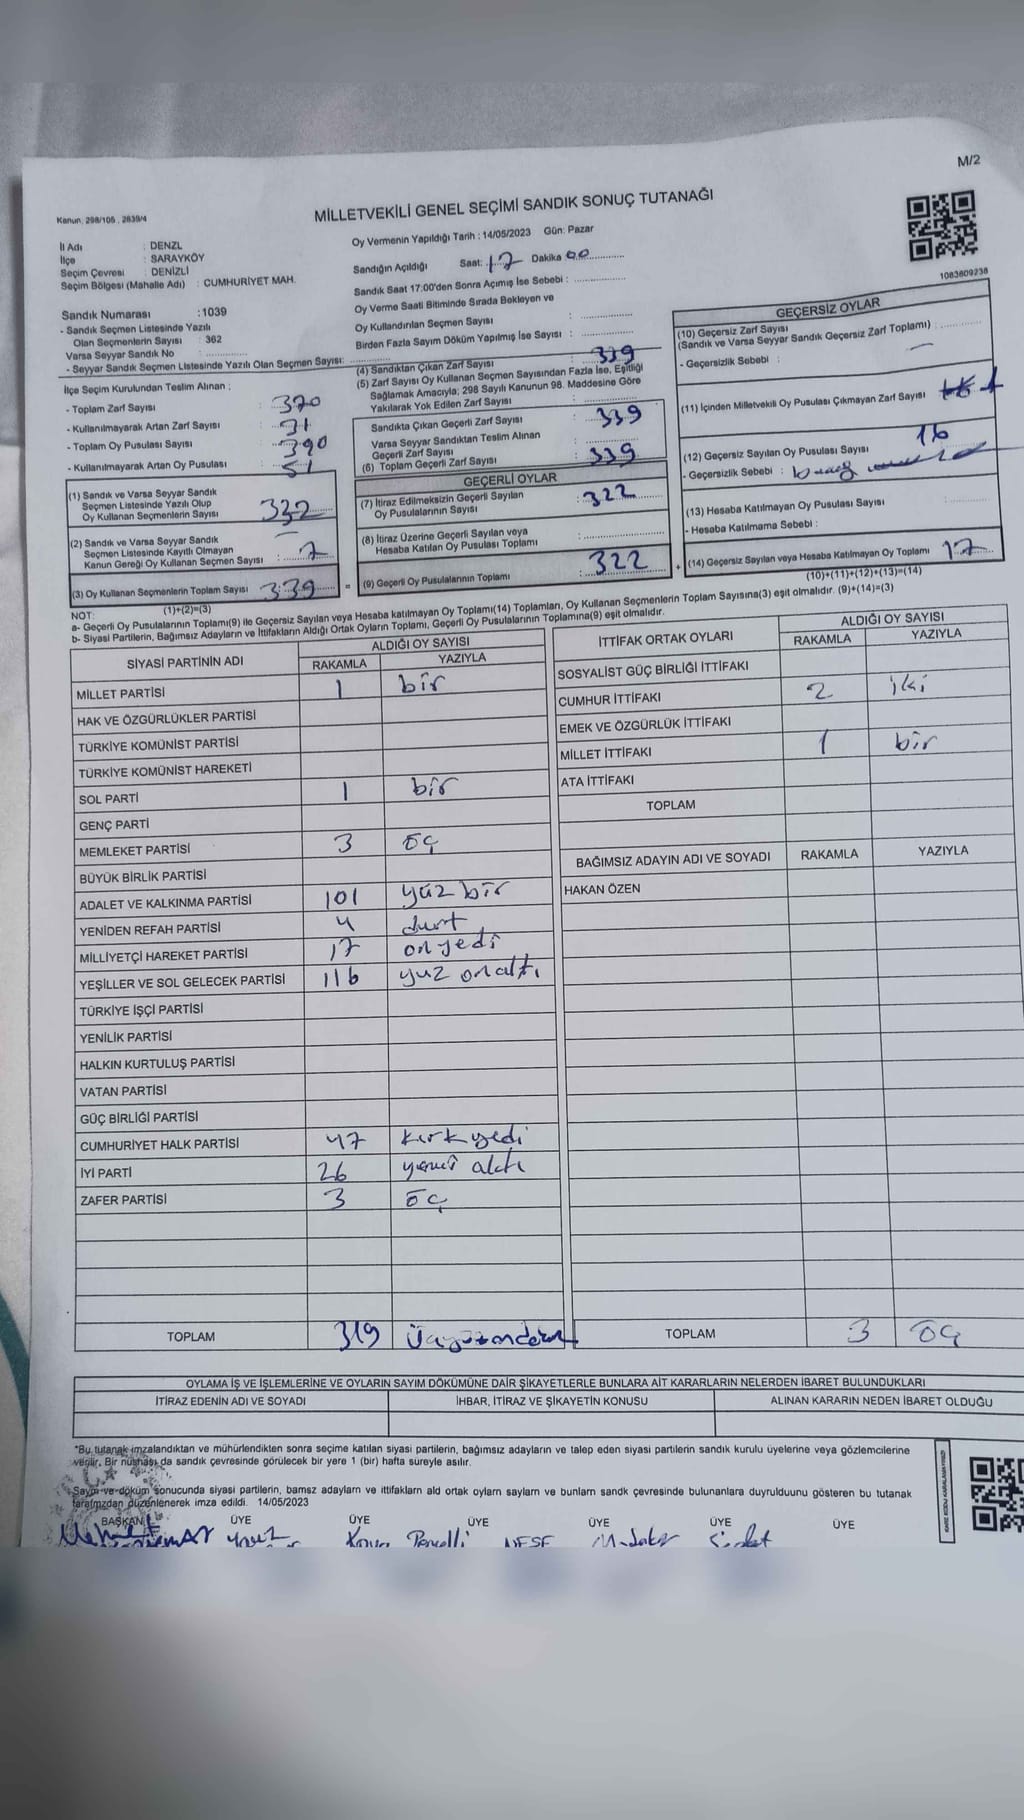 M/2
Kanun, 298/105 , 2839/4
MİLLETVEKİLİ GENEL SEÇİMİ SANDIK SONUÇ TUTANAĞI
İl Adı : DENZL
İlçe : SARAYKÖY
Seçim Çevresi : DENİZLİ
Seçim Bölgesi (Mahalle Adı) : CUMHURİYET MAH.
Sandık Numarası : 1039
- Sandık Seçmen Listesinde Yazılı
Olan Seçmenlerin Sayısı : 362
Varsa Seyyar Sandık No
- Seyyar Sandık Seçmen Listesinde Yazılı Olan Seçmen Sayısı:
İlçe Seçim Kurulundan Teslim Alınan ;
- Toplam Zarf Sayısı : 370
- Kullanılmayarak Artan Zarf Sayısı : 31
- Toplam Oy Pusulası Sayısı : 390
- Kullanılmayarak Artan Oy Pusulası : 51
(1) Sandık ve Varsa Seyyar Sandık
Seçmen Listesinde Yazılı Olup
Oy Kullanan Seçmenlerin Sayısı : 332
(2) Sandık ve Varsa Seyyar Sandık
Seçmen Listesinde Kayıtlı Olmayan
Kanun Gereği Oy Kullanan Seçmen Sayısı : 7
(3) Oy Kullanan Seçmenlerin Toplam Sayısı : 339
(1)+(2)=(3)
Oy Vermenin Yapıldığı Tarih : 14/05/2023 Gün: Pazar
Sandığın Açıldığı Saat: 17 Dakika 00
Sandık Saat 17:00'den Sonra Açımış İse Sebebi :
Oy Verme Saati Bitiminde Sırada Bekleyen ve
Oy Kullandırılan Seçmen Sayısı :
Birden Fazla Sayım Döküm Yapılmış İse Sayısı :
(4) Sandıktan Çıkan Zarf Sayısı : 339
(5) Zarf Sayısı Oy Kullanan Seçmen Sayısından Fazla İse, Eşitliği
Sağlamak Amacıyla; 298 Sayılı Kanunun 98. Maddesine Göre
Yakılarak Yok Edilen Zarf Sayısı :
Sandıkta Çıkan Geçerli Zarf Sayısı : 339
Varsa Seyyar Sandıktan Teslim Alınan
Geçerli Zarf Sayısı
(6) Toplam Geçerli Zarf Sayısı : 339
GEÇERLİ OYLAR
(7) İtiraz Edilmeksizin Geçerli Sayılan
Oy Pusulalarının Sayısı : 322
(8) İtiraz Üzerine Geçerli Sayılan veya
Hesaba Katılan Oy Pusulası Toplamı :
(9) Geçerli Oy Pusulalarının Toplamı : 322
1083809238
GEÇERSİZ OYLAR
(10) Geçersiz Zarf Sayısı
(Sandık ve Varsa Seyyar Sandık Geçersiz Zarf Toplamı) :
- Geçersizlik Sebebi :
(11) İçinden Milletvekili Oy Pusulası Çıkmayan Zarf Sayısı : 1
(12) Geçersiz Sayılan Oy Pusulası Sayısı 16
- Geçersizlik Sebebi :
(13) Hesaba Katılmayan Oy Pusulası Sayısı
- Hesaba Katılmama Sebebi :
(14) Geçersiz Sayılan veya Hesaba Katılmayan Oy Toplamı 17
(10)+(11)+(12)+(13)=(14)
NOT:
a- Geçerli Oy Pusulalarının Toplamı(9) ile Geçersiz Sayılan veya Hesaba katılmayan Oy Toplamı(14) Toplamları, Oy Kullanan Seçmenlerin Toplam Sayısına(3) eşit olmalıdır. (9)+(14)=(3)
b- Siyasi Partilerin, Bağımsız Adayların ve İttifakların Aldığı Ortak Oyların Toplamı, Geçerli Oy Pusulalarının Toplamına(9) eşit olmalıdır.
SİYASİ PARTİNİN ADI ALDIĞI OY SAYISI
RAKAMLA YAZIYLA
MİLLET PARTİSİ 1 bir
HAK VE ÖZGÜRLÜKLER PARTİSİ
TÜRKİYE KOMÜNİST PARTİSİ
TÜRKİYE KOMÜNİST HAREKETİ
SOL PARTİ 1 bir
GENÇ PARTİ
MEMLEKET PARTİSİ 3 üç
BÜYÜK BİRLİK PARTİSİ
ADALET VE KALKINMA PARTİSİ 101 yüz bir
YENİDEN REFAH PARTİSİ 4 durt
MİLLİYETÇİ HAREKET PARTİSİ 17 on yedi
YEŞİLLER VE SOL GELECEK PARTİSİ 116 yuz onaltı
TÜRKİYE İŞÇİ PARTİSİ
YENİLİK PARTİSİ
HALKIN KURTULUŞ PARTİSİ
VATAN PARTİSİ
GÜÇ BİRLİĞİ PARTİSİ
CUMHURİYET HALK PARTİSİ 47 kırk yedi
İYİ PARTİ 26 yirmi altı
ZAFER PARTİSİ 3 üç
TOPLAM 319
İTTİFAK ORTAK OYLARI ALDIĞI OY SAYISI
RAKAMLA YAZIYLA
SOSYALİST GÜÇ BİRLİĞİ İTTİFAKI
CUMHUR İTTİFAKI 2 iki
EMEK VE ÖZGÜRLÜK İTTİFAKI
MİLLET İTTİFAKI 1 bir
ATA İTTİFAKI
TOPLAM
BAĞIMSIZ ADAYIN ADI VE SOYADI RAKAMLA YAZIYLA
HAKAN ÖZEN
TOPLAM 3 üç
OYLAMA İŞ VE İŞLEMLERİNE VE OYLARIN SAYIM DÖKÜMÜNE DAİR ŞİKAYETLERLE BUNLARA AİT KARARLARIN NELERDEN İBARET BULUNDUKLARI
İTİRAZ EDENİN ADI VE SOYADI İHBAR, İTİRAZ VE ŞİKAYETİN KONUSU ALINAN KARARIN NEDEN İBARET OLDUĞU
*Bu tutanak imzalandıktan ve mühürlendikten sonra seçime katılan siyasi partilerin, bağımsız adayların ve talep eden siyasi partilerin sandık kurulu üyelerine veya gözlemcilerine
verilir. Bir nüshası da sandık çevresinde görülecek bir yere 1 (bir) hafta süreyle asılır.
Sayım ve döküm sonucunda siyasi partilerin, bamsz adaylarn ve ittifakların ald ortak oylarn saylarn ve bunların sandk çevresinde bulunanlara duyrulduunu gösteren bu tutanak
tarafmzdan düzenlenerek imza edildi. 14/05/2023
BAŞKAN ÜYE ÜYE ÜYE ÜYE ÜYE ÜYE